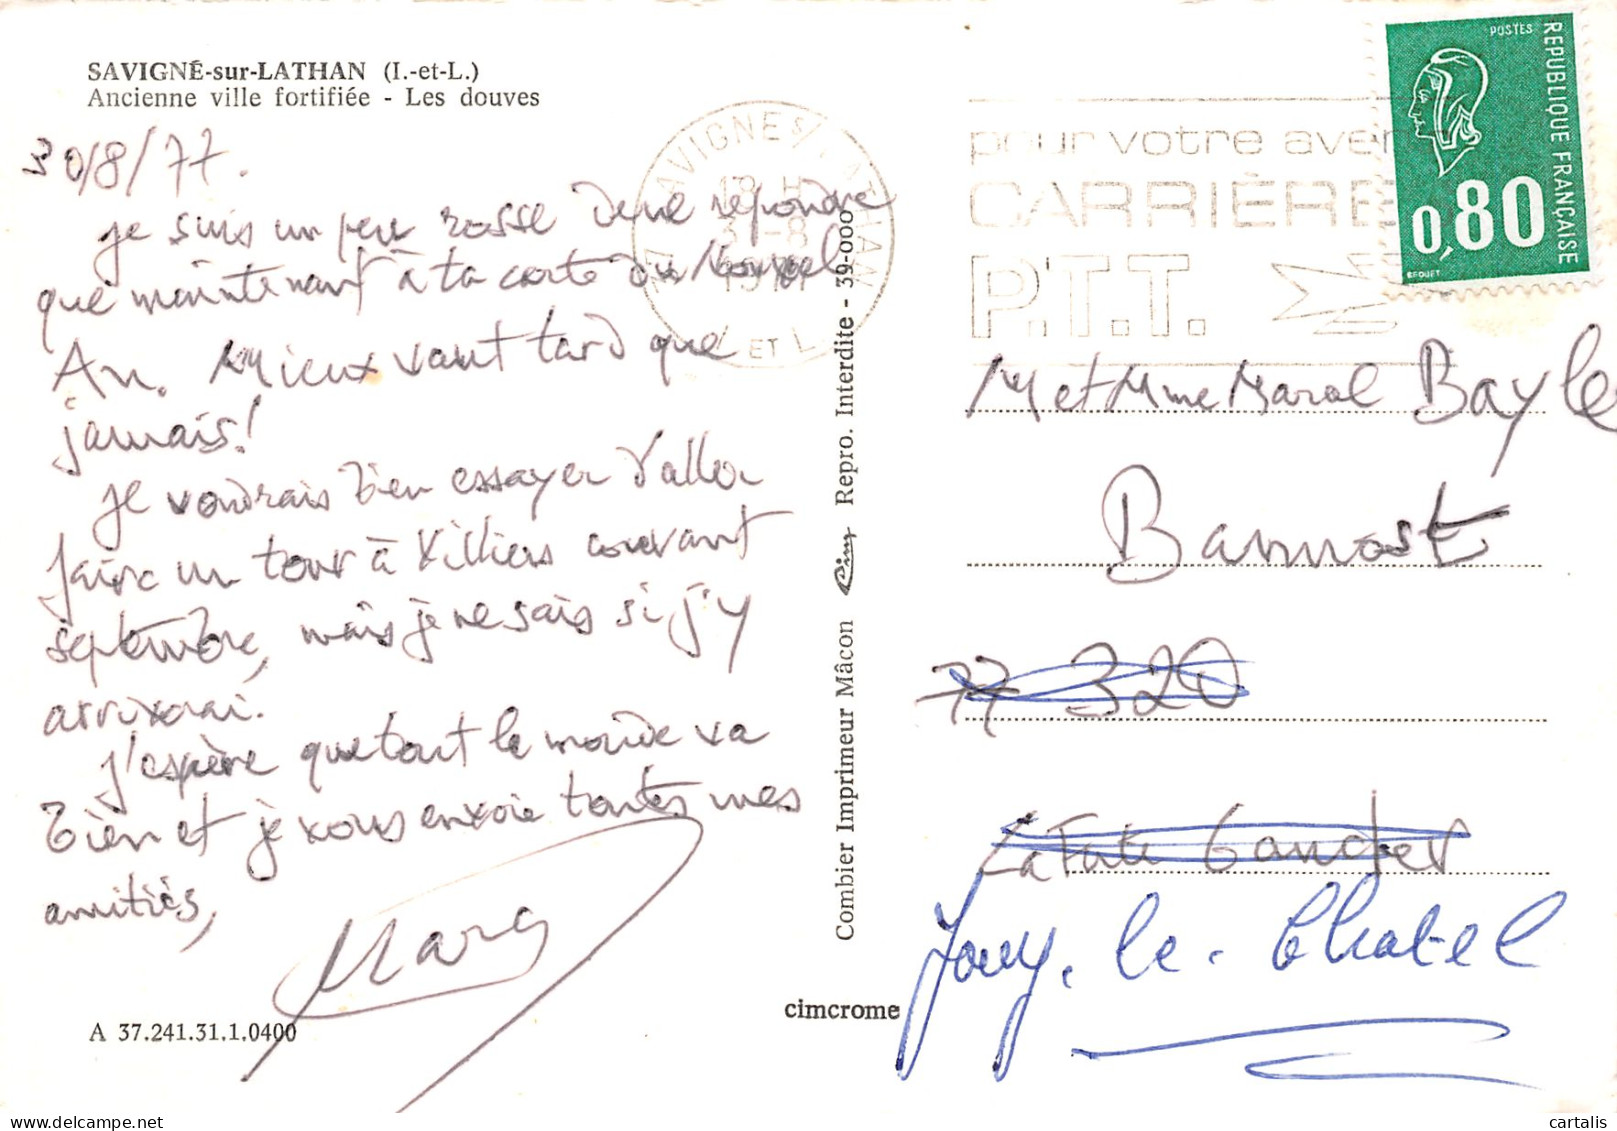 SAVIGNÉ-sur-LATHAN (I.-et-L.)
Ancienne ville fortifiée - Les douves
30/8/77.
je suis un peu rosse de ne répondre
que maintenant à ta carte du Nouvel
An. Mieux vaut tard que
jamais!
Je voudrais bien essayer d'aller
faire un tour à Villiers courant
septembre, mais je ne sais si j'y
arriverai.
J'espère que tout le monde va
bien et je vous envoie toutes mes
amitiés,
Marc
A 37.241.31.1.0400
Combier Imprimeur Mâcon Cim Repro. Interdite - 39-000
cimcrome
37 SAVIGNE S/ LATHAN
18 H
31-8
1977
I. ET L.
pour votre aven
CARRIÈRE
P.T.T.
POSTES
REPUBLIQUE FRANÇAISE
0,80
BEQUET
M et Mme Marcel Bayle
Bannost
77 320
La Ferté Gaucher
Jouy-le-Chatel
cartalis